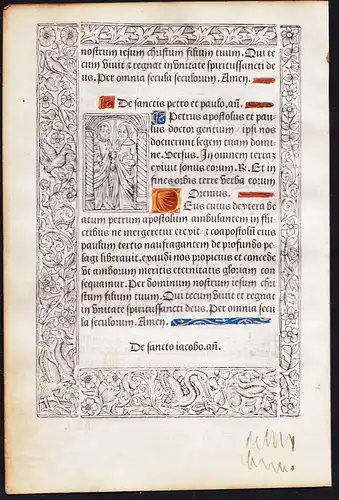 nostrum iesum christum filium tuum. Qui te
cum viuit & regnat in vnitate spiritussancti de
us. Per omnia secula seculorum. Amen.
De sanctis petro et paulo. añ.
Petrus apostolus et pau
lus doctor gentium ipsi nos
docuerunt legem tuam domi
ne. Versus. In omnem terrã
exiuit sonus eorum. R. Et in
fines orbis terre verba eorum
Oremus.
Eus cuius dextera be
atum petrum apostolum ambulantem in flu
ctibus ne mergeretur erexit: & coapostolũ eius
paulum tertio naufragantem de profundo pe
lagi liberauit. exaudi nos propicius et concede
vt amborum meritis eternitatis gloriam con
sequamur. Per dominum nostrum iesum chri
stum filium tuum. Qui tecum viuit et regnat
in vnitate spiritussancti deus. Per omnia secu
la seculorum. Amen.
De sancto iacobo. añ.